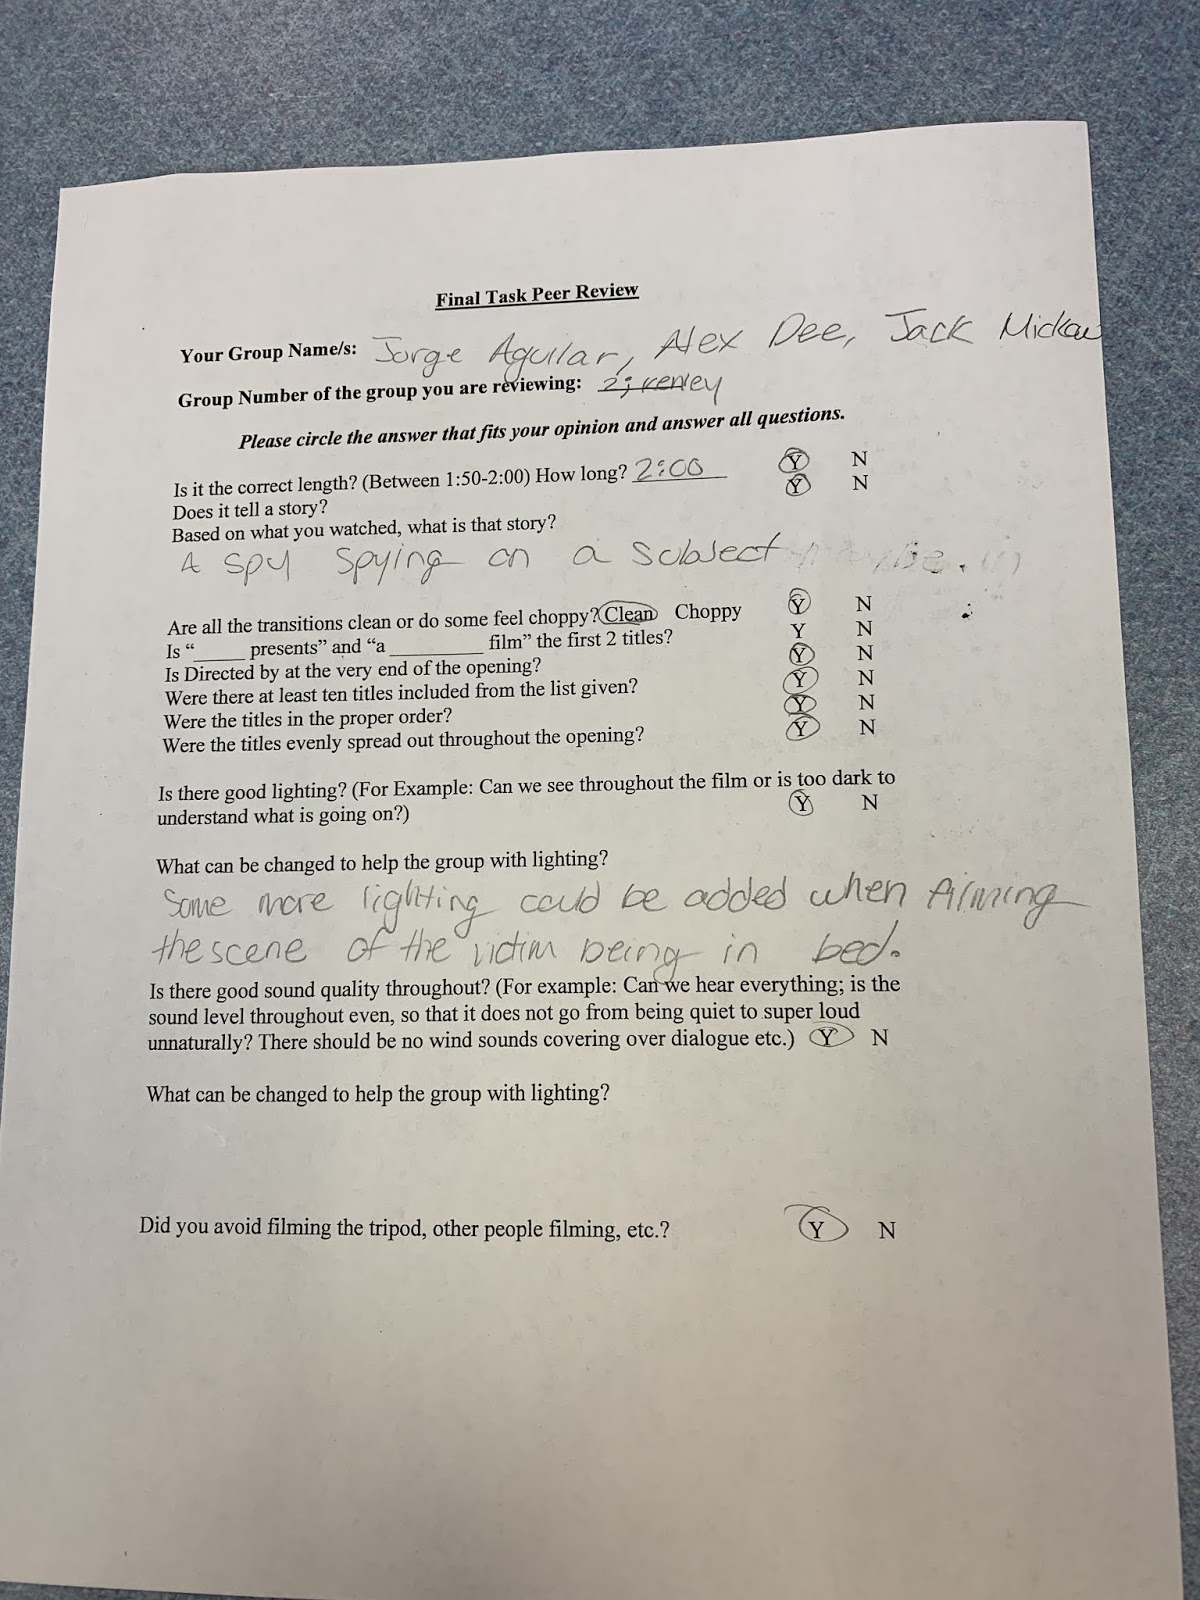 Final Task Peer Review
Your Group Name/s: Jorge Aguilar, Alex Dee, Jack
Group Number of the group you are reviewing: 2; Kenley
Please circle the answer that fits your opinion and answer all questions.
Is it the correct length? (Between 1:50-2:00) How long? 2:00 Y N
Does it tell a story? Y N
Based on what you watched, what is that story?
A spy spying on a subject
Are all the transitions clean or do some feel choppy? Clean Choppy Y N
Is “_____ presents” and “a _________ film” the first 2 titles? Y N
Is Directed by at the very end of the opening? Y N
Were there at least ten titles included from the list given? Y N
Were the titles in the proper order? Y N
Were the titles evenly spread out throughout the opening? Y N
Is there good lighting? (For Example: Can we see throughout the film or is too dark to
understand what is going on?) Y N
What can be changed to help the group with lighting?
Some more lighting could be added when filming
the scene of the victim being in bed.
Is there good sound quality throughout? (For example: Can we hear everything; is the
sound level throughout even, so that it does not go from being quiet to super loud
unnaturally? There should be no wind sounds covering over dialogue etc.) Y N
What can be changed to help the group with lighting?
Did you avoid filming the tripod, other people filming, etc.? Y N